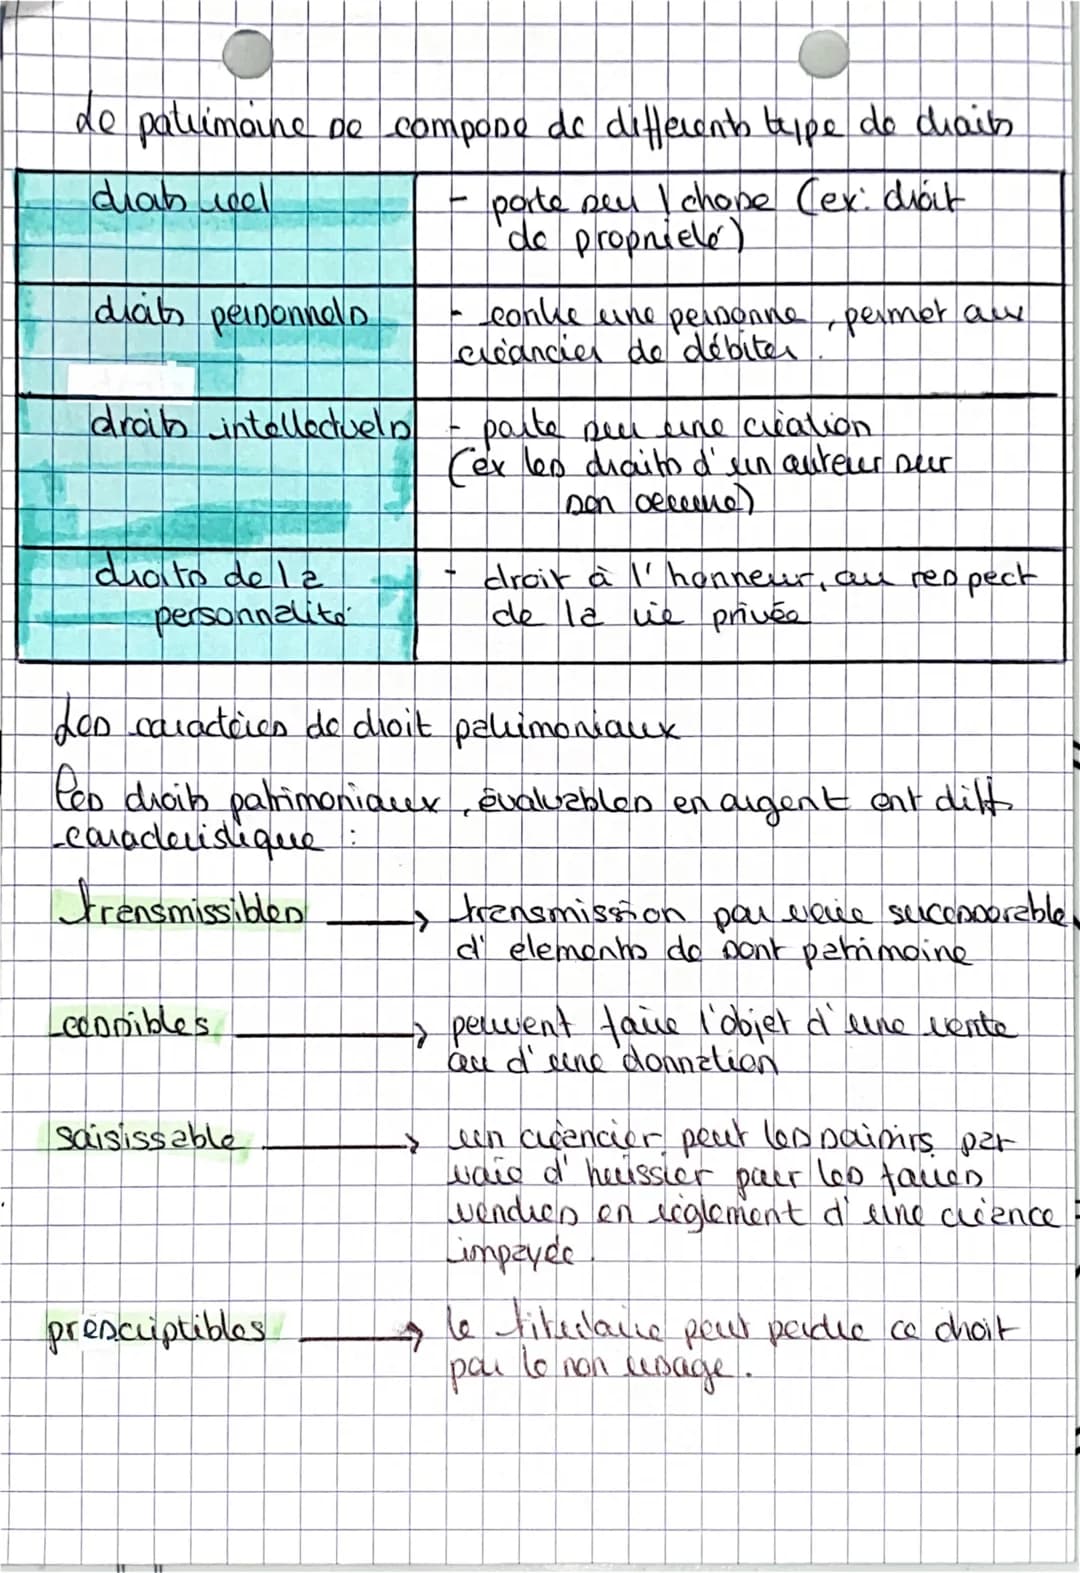 Le patrimoine se compose de différents type de droits
droits reel
- porte sur 1 chose (ex: droit
de propriété)
droits personnels
- contre une personne, permet aux
créancier de débiter.
droits intellectuels
- porte sur une création
(ex les droits d'un auteur sur
son oeuvre)
droits de la
personnalité
- droit à l'honneur, au respect
de la vie privée
Les caractères de droit patrimoniaux
les droits patrimoniaux, évaluables en argent ont diff
caracteristique :
transmissibles → transmission par voie sucessorable
d'elements de sont patrimoine
cessibles → peuvent faire l'objet d'une vente
ou d'une donnation
saisissable → un créancier peut les saisirs par
voie d'huissier pour les faires
vendres en règlement d'une créance
impayée.
prescriptibles → le titulaire peut perdre ce droit
par le non usage.